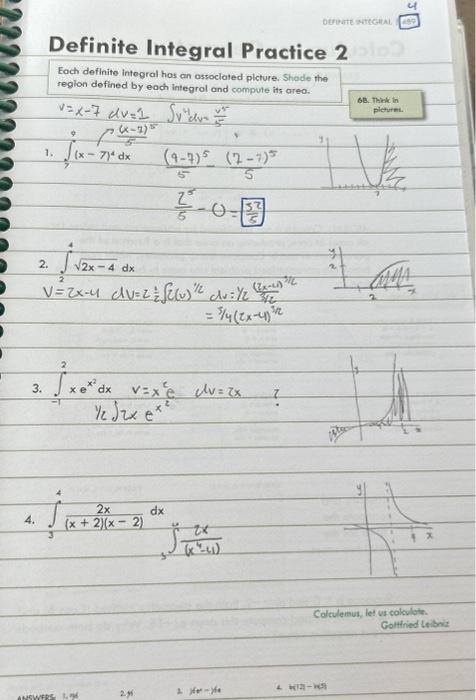 4
DEFINITE INTEGRAL 489
Definite Integral Practice 2
Each definite integral has an associated picture. Shade the
region defined by each integral and compute its area.
6B. Think in
pictures.
v=x-7 dv=1 ∫v⁴dv= v⁵/5
(x-7)⁵/5
1. ∫₇⁹ (x − 7)⁴ dx (9-7)⁵/5 - (7-7)⁵/5
2⁵/5 - 0 = 32/5
2. ∫₂⁴ √2x − 4 dx
V=2x-4 dv=2 ½∫2(v)^½ dv = ½ (2x-4)^3/2 / 3/2
= 3/4(2x-4)^3/2
3. ∫₋₁² x e^x² dx v=x² dv=2x ?
½∫2x e^x²
4. ∫₃⁴ 2x/(x + 2)(x − 2) dx
∫₃⁴ 2x/(x⁴-4)
Calculemus, let us calculate.
Gottfried Leibniz
ANSWERS: